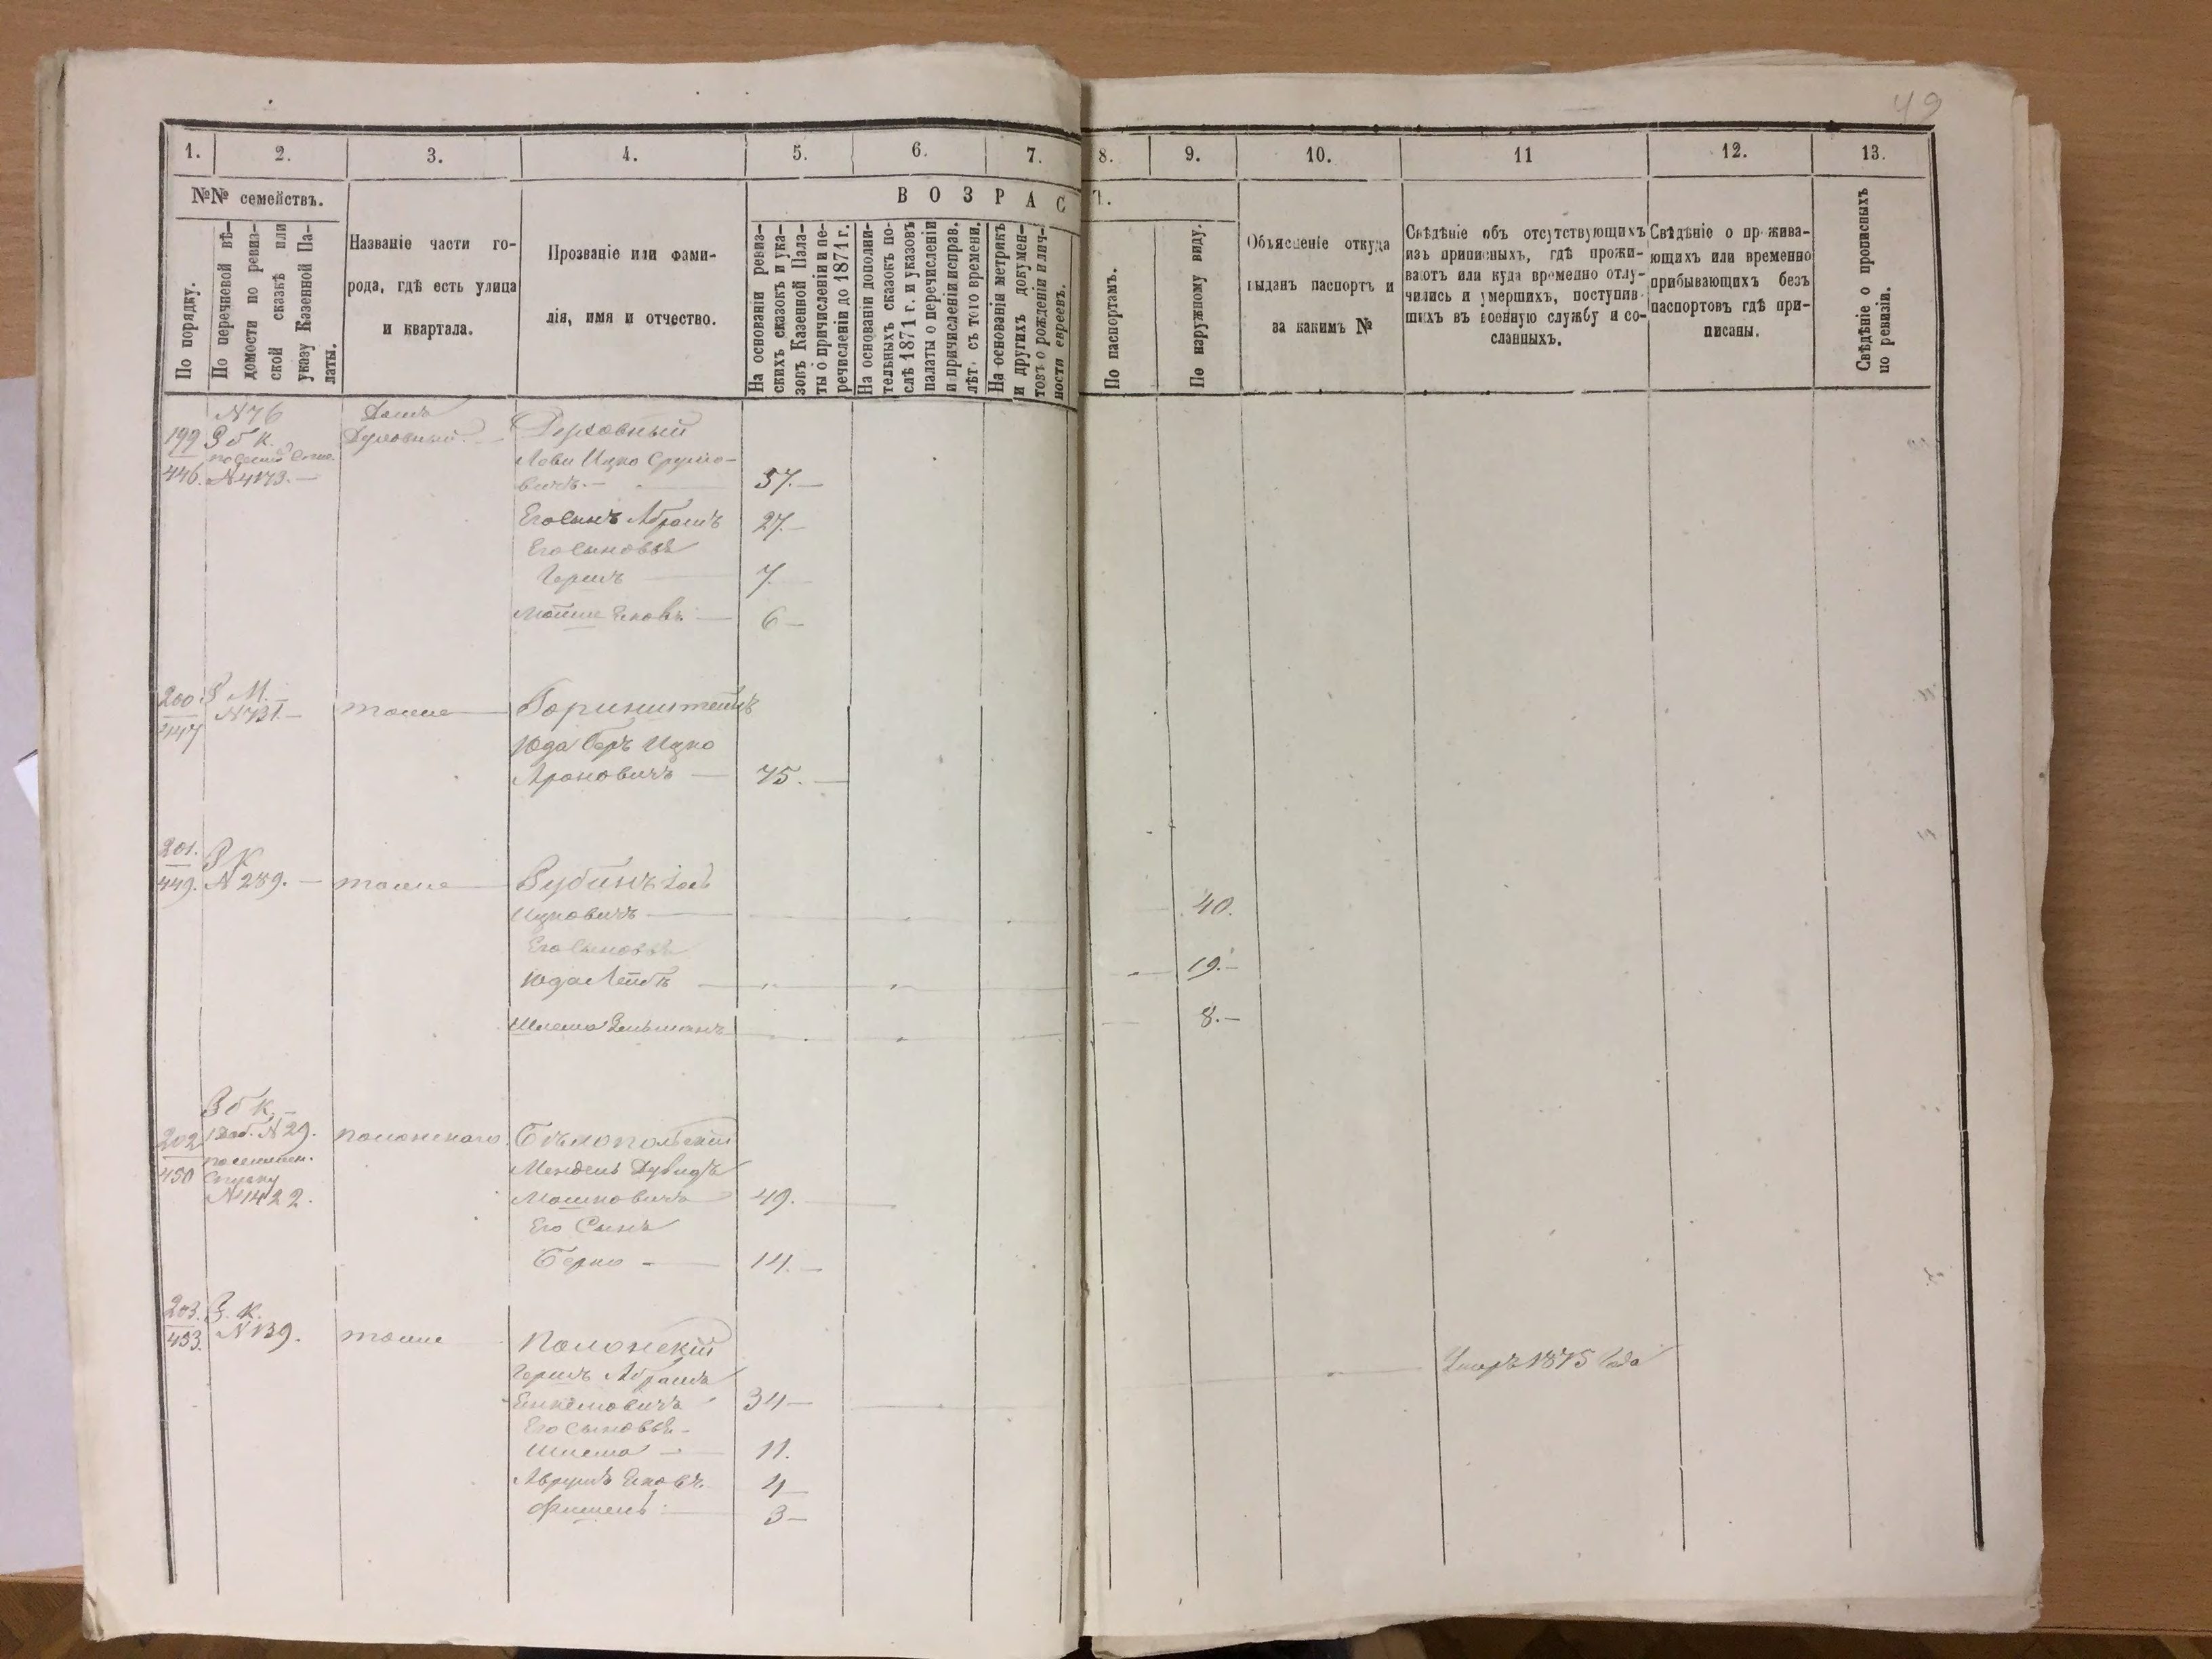 49
1.
2.
3.
4.
5.
6.
7.
8.
9.
10.
11
12.
13.
№№ семействъ.
По порядку.
По перечневой вѣ-
домости по ревиз-
ской сказкѣ или
указу Казенной Па-
латы.
Названіе части го-
рода, гдѣ есть улица
и квартала.
Прозваніе или фами-
лія, имя и отчество.
ВОЗРАС
Т.
На основаніи ревиз-
скихъ сказокъ и ука-
зовъ Казенной Пала-
ты о причисленіи и пе-
речисленіи до 1871 г.
На основаніи дополни-
тельныхъ сказокъ по-
слѣ 1871 г. и указовъ
палаты о перечисленіи
и причисленіи исправ.
лѣт. съ того времени.
На основаніи метрикъ
и другихъ докумен-
товъ о рожденіи и лич-
ности евреевъ.
По паспортамъ.
По наружному виду.
Объясненіе откуда
выданъ паспортъ и
за какимъ №
Свѣдѣніе объ отсутствующихъ
изъ приписныхъ, гдѣ прожи-
ваютъ или куда временно отлу-
чились и умершихъ, поступив-
шихъ въ военную службу и со-
сланныхъ.
Свѣдѣніе о прожива-
ющихъ или временно
прибывающихъ безъ
паспортовъ гдѣ при-
писаны.
Свѣдѣніе о прописныхъ
по ревизіи.
199
446.
N76
З б К.
N4173.—
Домъ
Духовный
Лови Ицко Срулю-
вичъ.— 57.—
Его Сынъ Абрамъ 27.—
Его Сыновья
Гершъ — 7.
Мошие Янковъ — 6—
200
447
З М.
N731.—
тоже
Боринштейнъ
Юда Беръ Ицко
Ароновичъ — 75.—
201.
449.
З К
N289.—
тоже
Рубинъ
Ицковичъ — 40.
Его Сыновья
Юда Лейбъ — 19.—
Шлема Зельманъ 8.—
202
450
З б К.—
1 Доб. N29.
N1422.
Полонскаго
Бѣлопольскій
Мендель Дувидъ
Мошковичъ 49.
Его Сынъ
Берко — 14.—
203.
453.
З. К.
N139.
тоже
Полонскій
Гершъ Абрамъ
34—
Его Сыновья—
Шлема — 11.
Аврумъ Янковъ 4—
Фишель: 3—
Умеръ 1875 Года